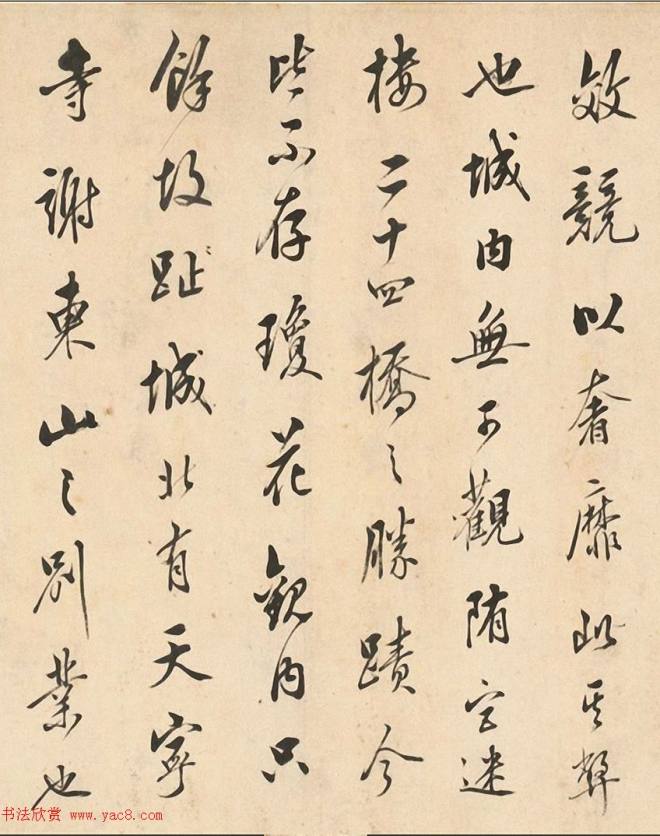 效競以奢靡此其弊
也城內無可觀隋宮迷
樓二十四橋之勝蹟今
皆不存瓊花觀內只
餘故趾城北有天寧
寺謝東山之別業也
书法欣赏 www.yac8.com